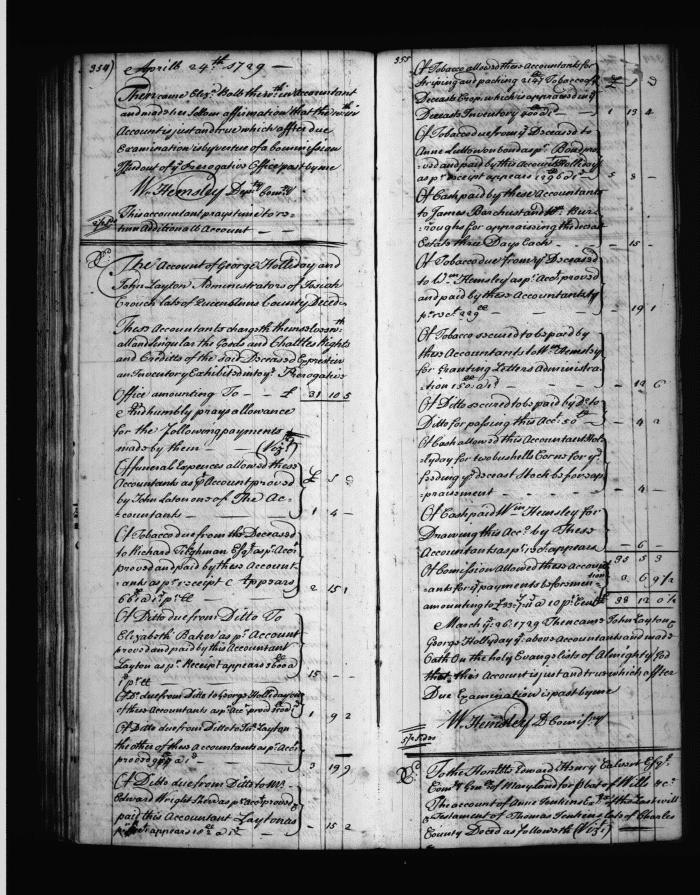 354)
Aprill 24th 1729
Then came Elizt. the within accountant
and made her Sollem affirmation that the within
Account is just and true which after due
Examination is by vertue of a Commission
out of ye Prerogative Office past by me
Wm. Hemsley Depty Comry
This accountant prays time to re-
turn Additionall Account
The Account of George Holliday and
John Layton Administrators of Josiah
Crouch late of Queen Anns County Deced.
These Accountants chargeth themselves with
all and Singular the Goods and Chattles Rights
and Creditts of the said Deceased Exprest in
an Inventory Exhibited into ye Prerogative
Office amounting To - - £ 31 10 5
And humbly prays allowance
for the Following payments
made by them (Vizt.
Of funeral Expences allowed these
Accountants as pr. Account proved
by John Laton one of The Ac-
countants 1 4 -
Of Tobacco due from the Deceased
to Richard Tilghman Esqr. as pr. Accot.
proved and paid by these Account-
ants as pr. receipt Appears
2 15 1
Of Ditto due from Ditto To
Elizabeth Baker as pr. Account
proved and paid by this Accountant
Layton as pr. Receipt appears
15 - -
Of Do. due from Ditto to George Holliday one
of these Accountants as pr. Acc. proved
1 9 2
Of Ditto due from Ditto to Jno. Layton
the other of these Accountants as pr. Accot.
proved 3 19 9
Of Ditto due from Ditto to Mr.
Edward Wright as pr. acc. proved
paid this Accountant Layton as
appears - 15 2
355
Of Tobacco allowed these Accountants for
striping and packing 2147 Tobacco of
Deceaseds Crop which is appears in ye
Deceaseds Inventory 1 13 4
Of Tobacco due from ye Deceased to
Anne on bond as pr. Bond pro-
ved and paid by this Accountt. Holliday
as pr. receipt appears 5 3 -
Of Cash paid by these Accountants
to James and Wm. Bur-
roughs for appraising the deceased
Estate three Days Each - 15 -
Of Tobacco due from ye Deceased
to Wm. Hemsley as pr. Acc. proved
and paid by these Accountants
pr. rect. - 19 1
Of Tobacco secured to be paid by
these Accountants to Wm. Hemsley
for Granting Letters Administra-
tion - 12 6
Of Ditto secured to be paid by Do. to
Ditto for passing this Acc. - 4 2
Of Cash allowed this Accountant Hol-
lyday for two bushells Corn for ye
feeding ye deceast Stock before ap-
praisement - 4 -
Of Cash paid Wm. Hemsley for
Drawing this Acc. by These
Accountants as pr. rect. appears - 6 -
35 5 3
Of Comission allowed these Accountt-
ants for ye payments beforemen- 3 6 9½
tion amounting to at 10 pr. Cent
38 12 0½
March ye 26. 1729 Then came John Layton &
George Hollyday ye above Accountants and made
Oath On the holy Evangelists of Almighty God
that this Account is just and true which after
Due Examination is past by me
Wm. Hemsley D Comissry
To the Honble. Edward Henry Calvert Esqr.
Comry Genl. of Maryland for pbat of Wills &c.
The account of Anne Jenkins of the Last will
& Testament of Thomas Jenkins late of Charles
County Deced as followeth (Vizt.)